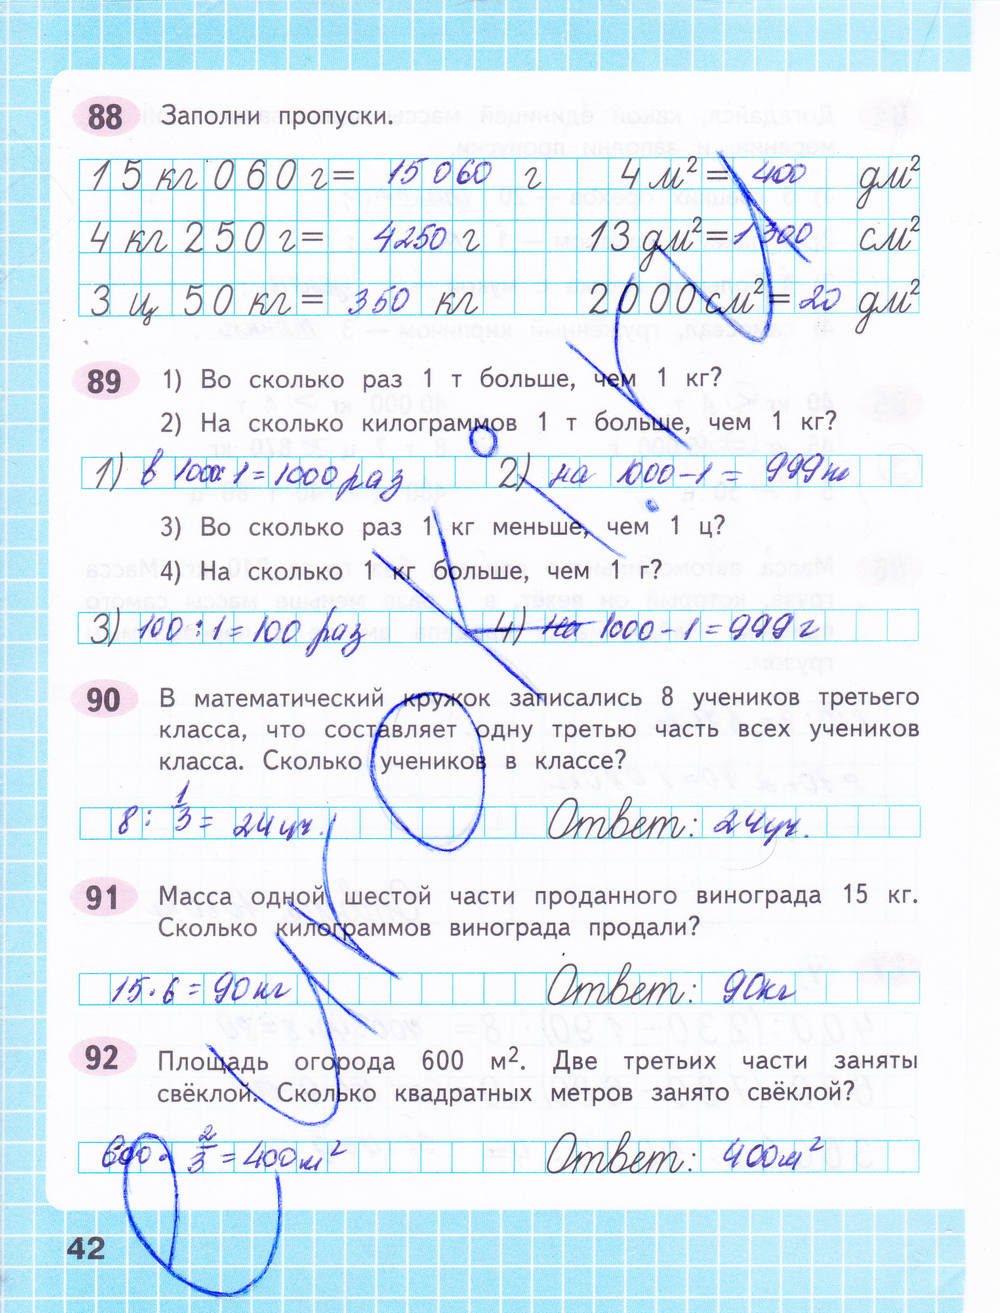 88 Заполни пропуски.
15 кг 060 г = 15 060 г 4 м² = 400 дм²
4 кг 250 г = 4250 г 13 дм² = 1300 см²
3 ц 50 кг = 350 кг 2000 см² = 20 дм²
89 1) Во сколько раз 1 т больше, чем 1 кг?
2) На сколько килограммов 1 т больше, чем 1 кг?
1) в 1000:1=1000 раз 2) на 1000-1 = 999 кг
3) Во сколько раз 1 кг меньше, чем 1 ц?
4) На сколько 1 кг больше, чем 1 г?
3) 100:1=100 раз 4) на 1000-1=999 г
90 В математический кружок записались 8 учеников третьего
класса, что составляет одну третью часть всех учеников
класса. Сколько учеников в классе?
8 : 1/3 = 24 уч. Ответ: 24 уч.
91 Масса одной шестой части проданного винограда 15 кг.
Сколько килограммов винограда продали?
15·6=90 кг Ответ: 90 кг
92 Площадь огорода 600 м². Две третьих части заняты
свёклой. Сколько квадратных метров занято свёклой?
600· 2/3 = 400 м² Ответ: 400 м²
42